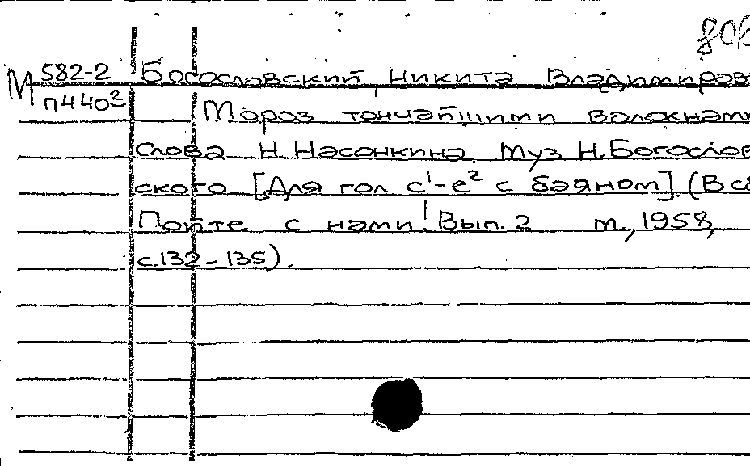 М 582-2 Богословский, Никита Владимиров
П4402
Мороз тончайшими волокнами
слова Н. Насонкина Муз Н. Богослов
ского [Для гол с¹-е² с баяном] (В сб
Пойте с нами! Вып. 2 М., 1958,
с. 132-135).